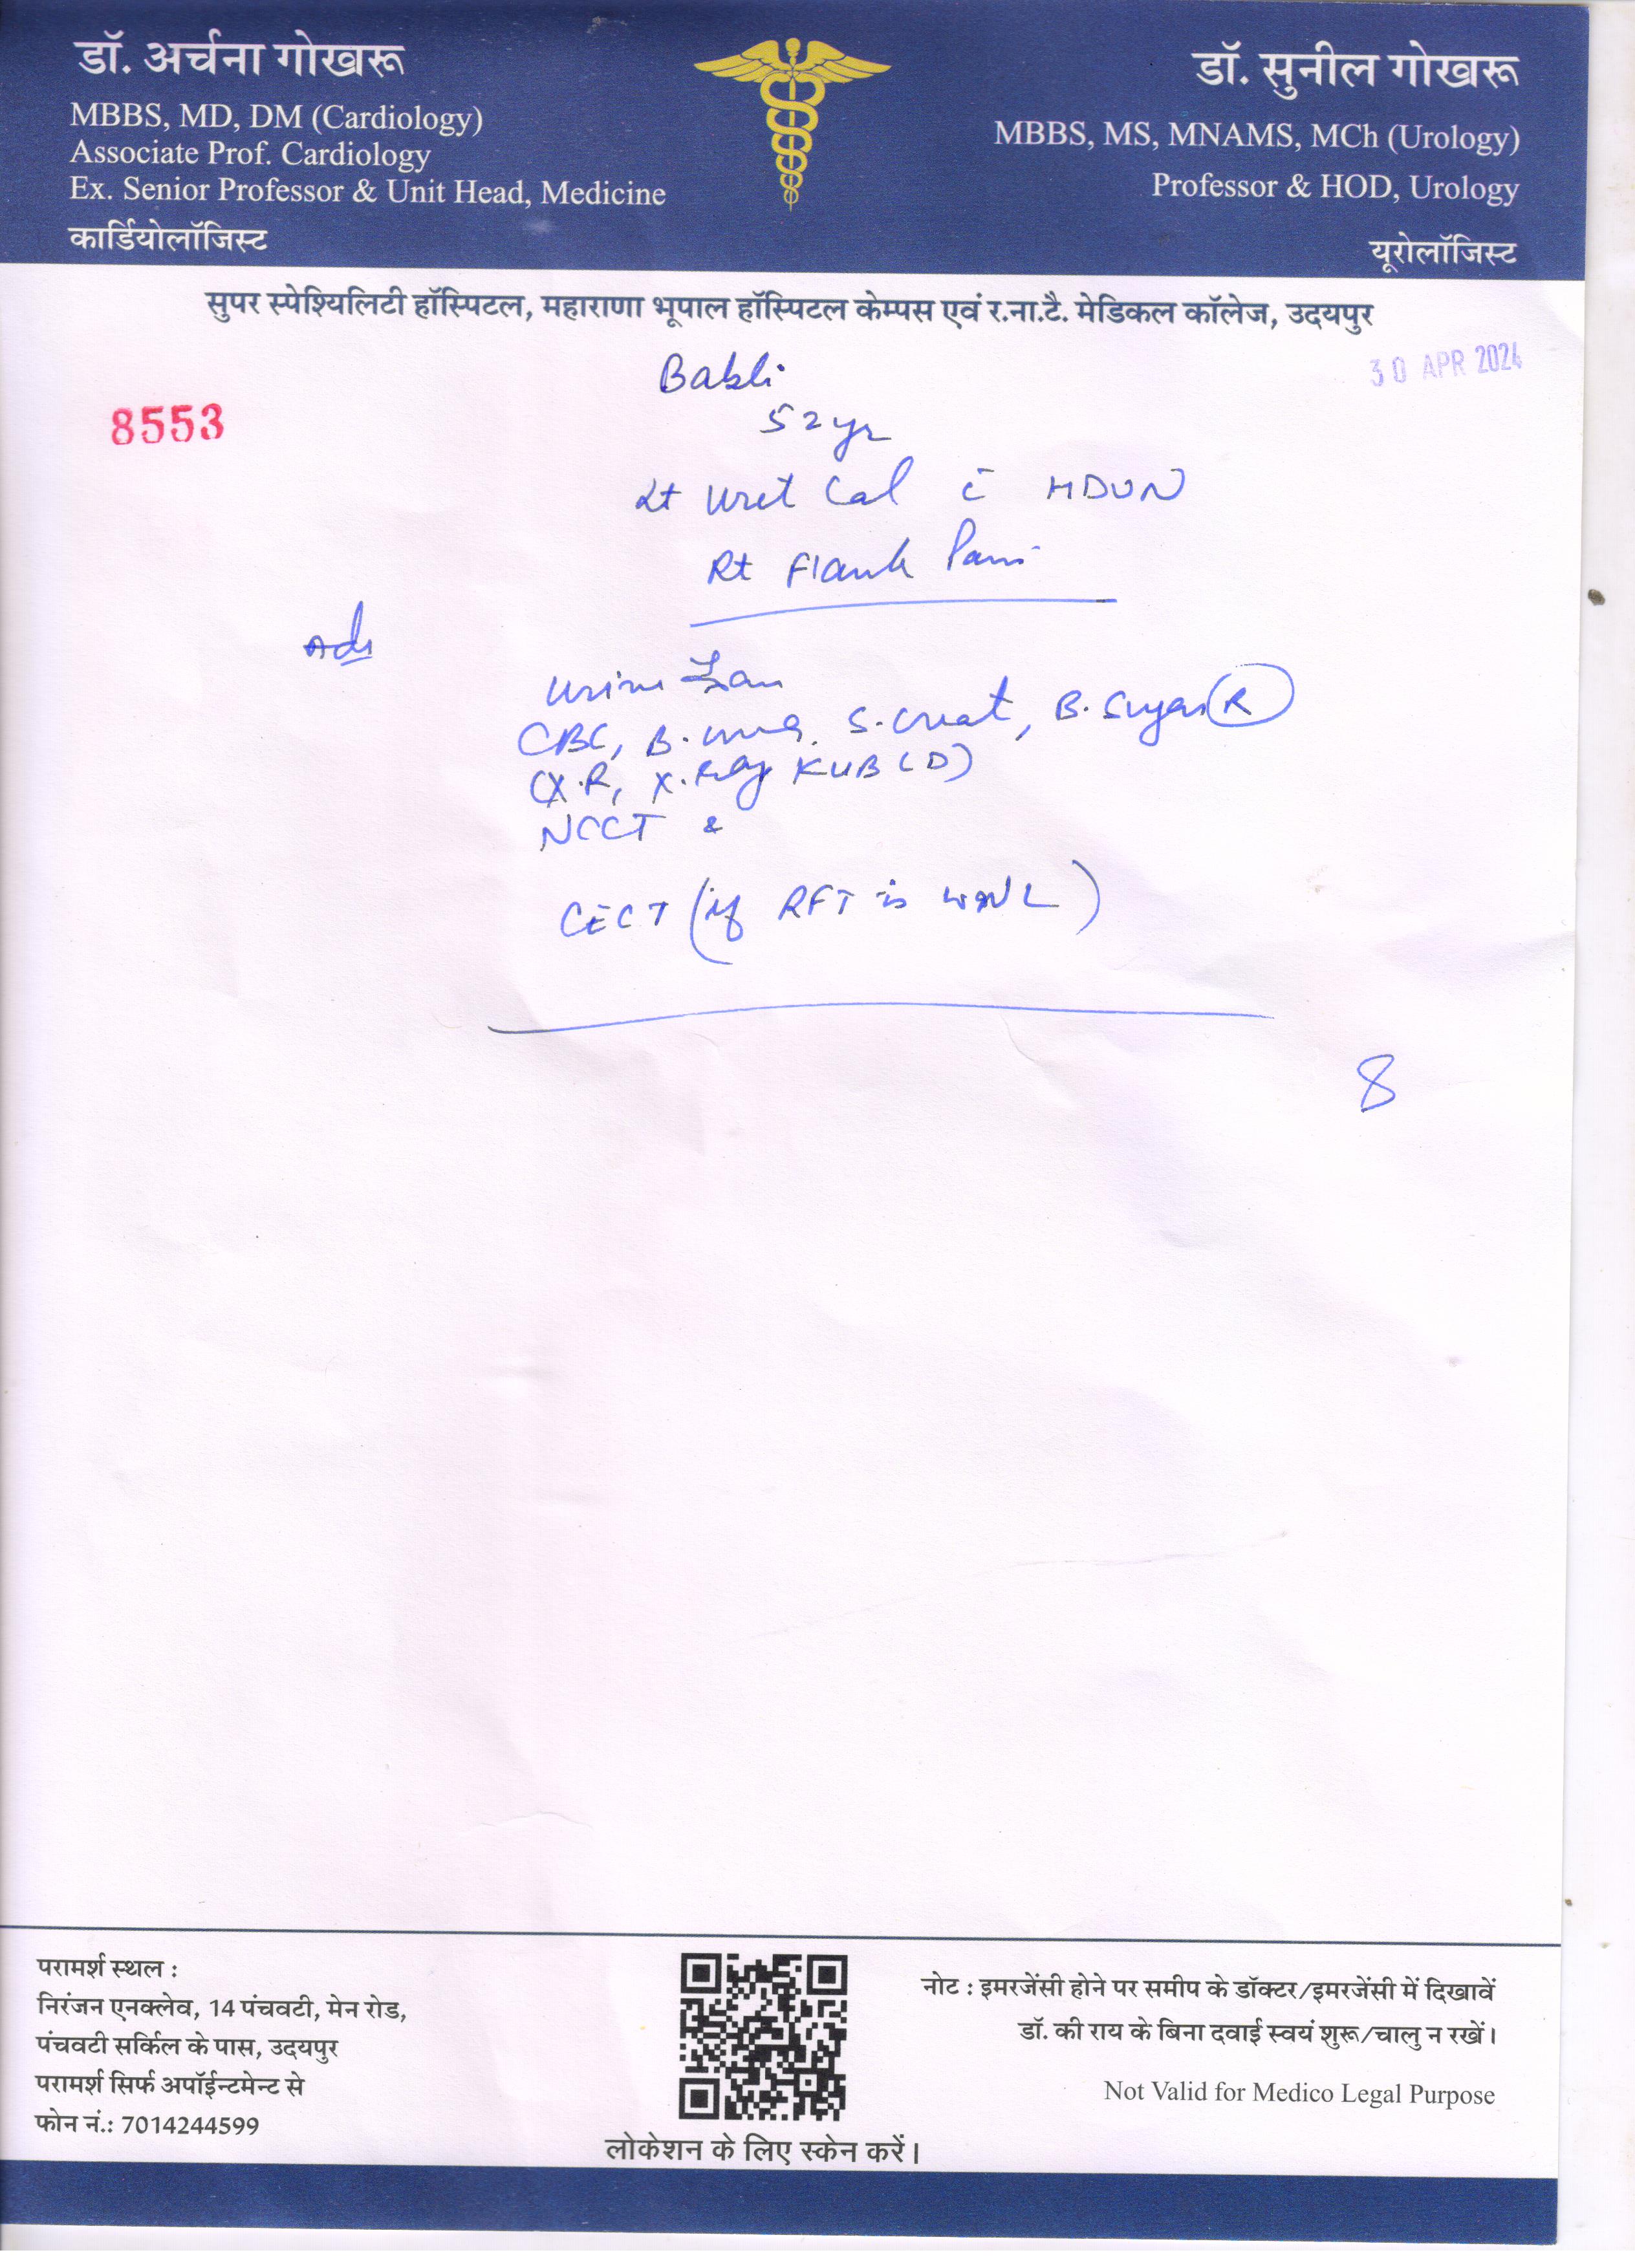 डॉ. अर्चना गोखरू
MBBS, MD, DM (Cardiology)
Associate Prof. Cardiology
Ex. Senior Professor & Unit Head, Medicine
कार्डियोलॉजिस्ट
डॉ. सुनील गोखरू
MBBS, MS, MNAMS, MCh (Urology)
Professor & HOD, Urology
यूरोलॉजिस्ट
सुपर स्पेश्यिलिटी हॉस्पिटल, महाराणा भूपाल हॉस्पिटल केम्पस एवं र.ना.टै. मेडिकल कॉलेज, उदयपुर
30 APR 2024
8553
52 yr
Lt Uret Cal c̄ HDUN
Rt Flank Pain
Adv
Urine
CBC, B. urea, S. creat, B. Sugar (R)
CX.R, X.Ray KUB (D)
NCCT &
CECT (if RFT is WNL)
8
परामर्श स्थल :
निरंजन एनक्लेव, 14 पंचवटी, मेन रोड,
पंचवटी सर्किल के पास, उदयपुर
परामर्श सिर्फ अपॉईन्टमेन्ट से
फोन नं.: 7014244599
लोकेशन के लिए स्केन करें।
नोट : इमरजेंसी होने पर समीप के डॉक्टर/इमरजेंसी में दिखावें
डॉ. की राय के बिना दवाई स्वयं शुरू/चालु न रखें।
Not Valid for Medico Legal Purpose